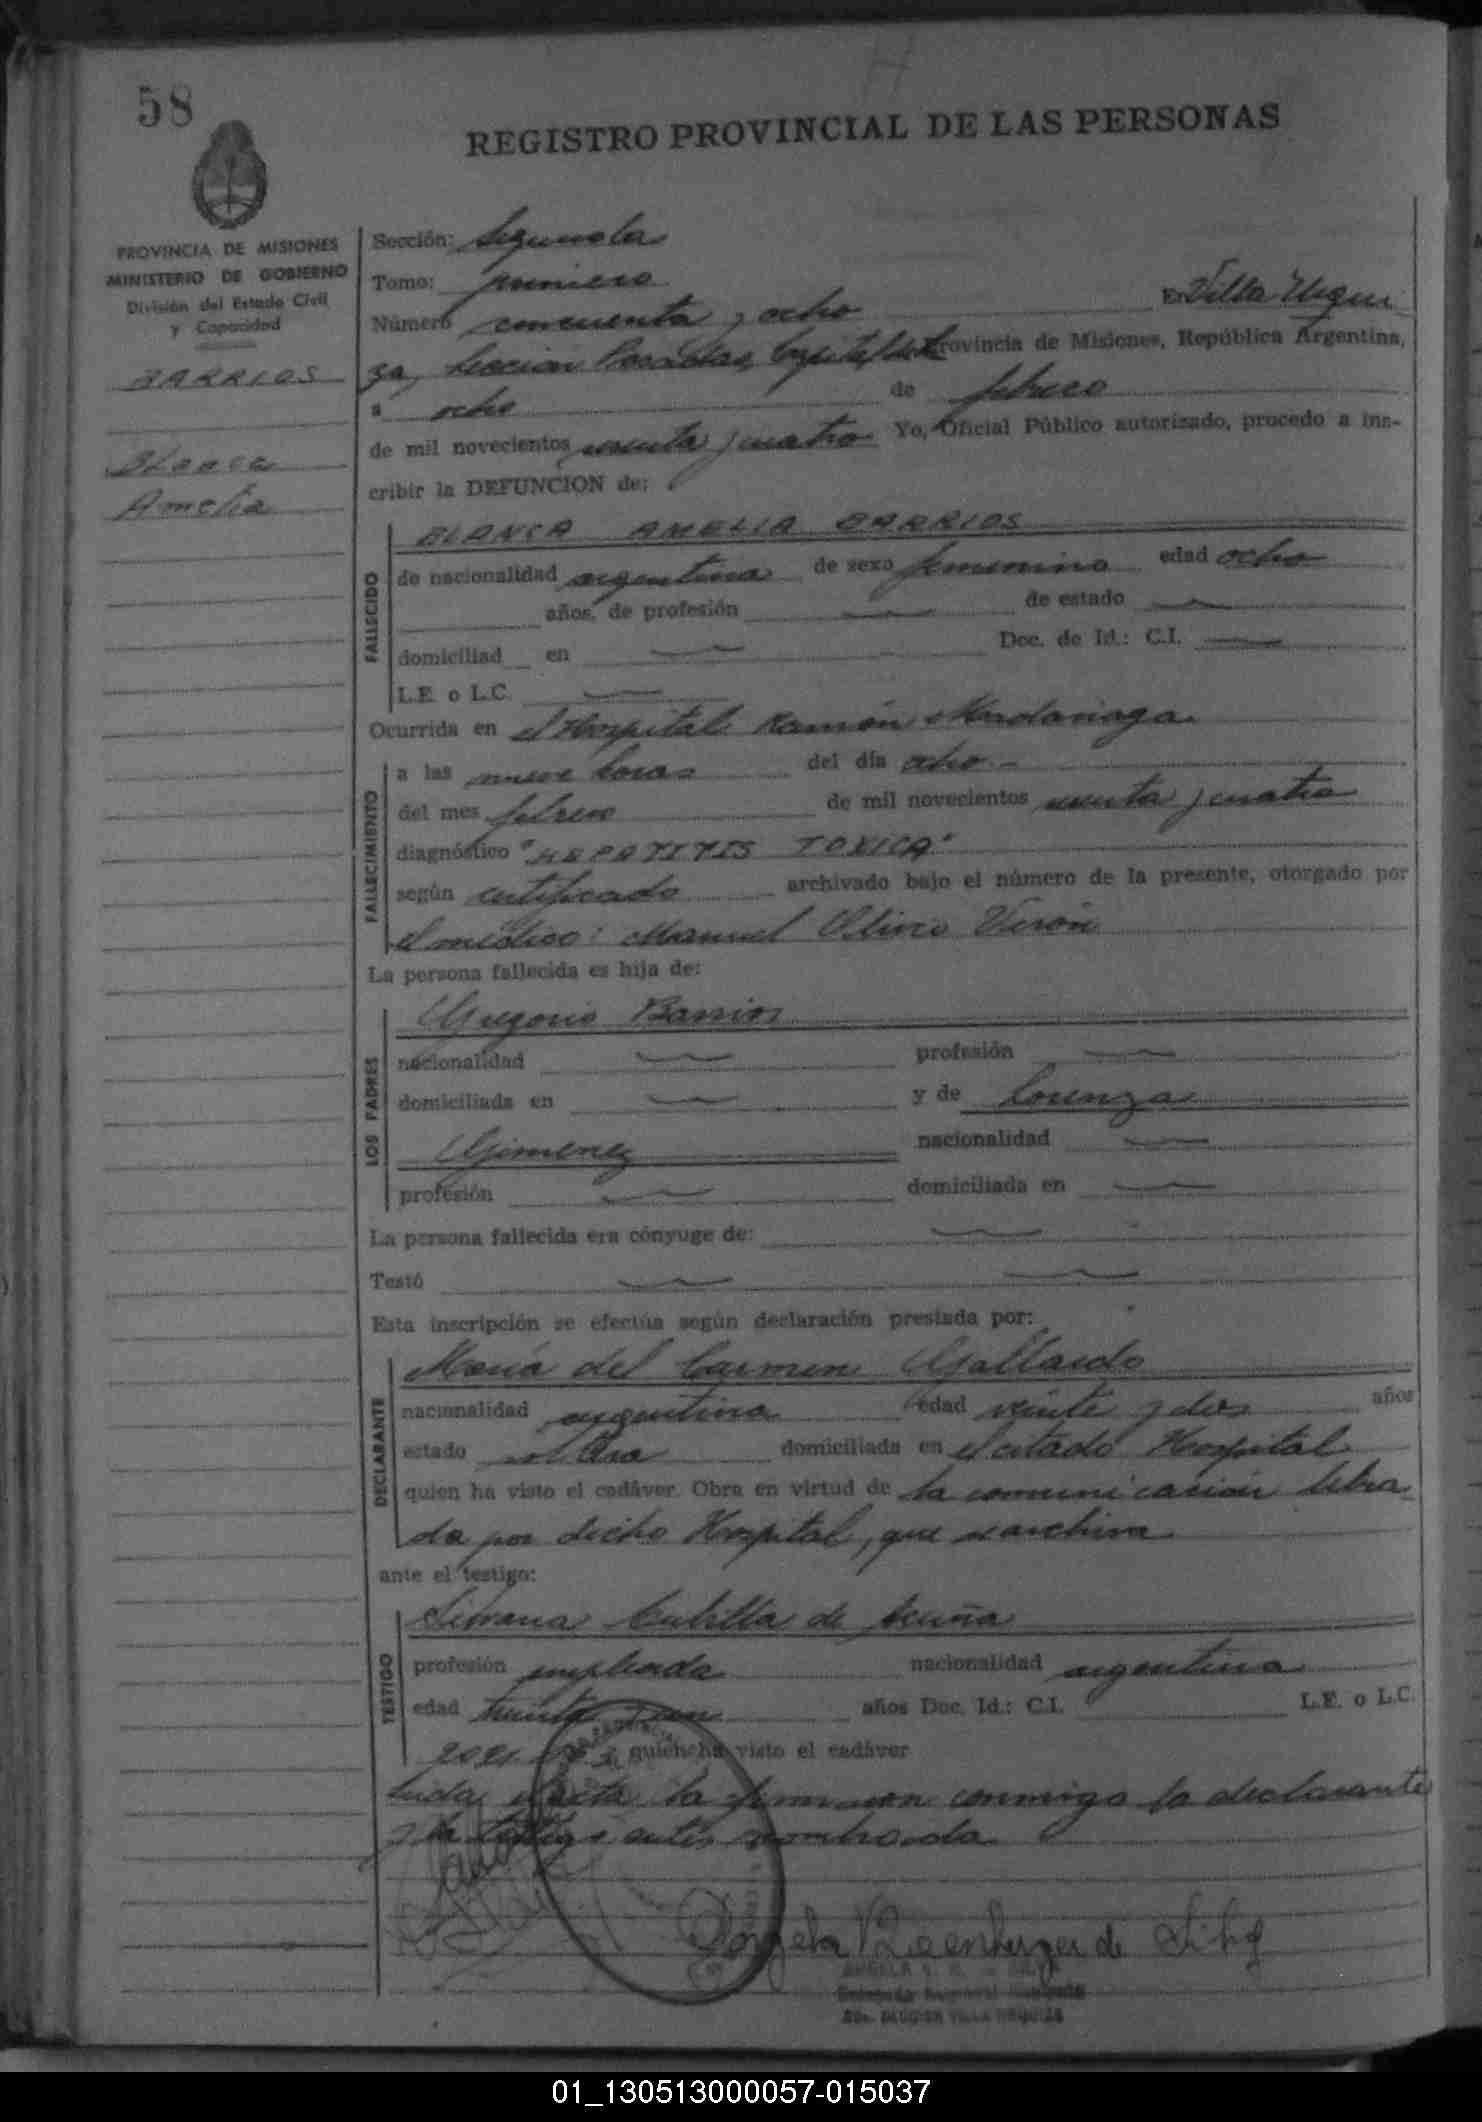 58
REGISTRO PROVINCIAL DE LAS PERSONAS
PROVINCIA DE MISIONES
MINISTERIO DE GOBIERNO
División del Estado Civil
y Capacidad
BARRIOS
Blanca
Amelia
Sección: Segunda
Tomo: primero
Número cincuenta y ocho En Villa Urqui
za, Sección Posadas, Capital de la Provincia de Misiones, República Argentina,
a ocho de febrero
de mil novecientos y cuatro Yo, Oficial Público autorizado, procedo a ins-
cribir la DEFUNCION de:
BLANCA AMELIA BARRIOS
FALLECIDO
de nacionalidad argentina de sexo femenino edad ocho
años, de profesión de estado
domiciliad en Doc. de Id.: C.I.
L.E. o L.C.
Ocurrida en el Hospital Ramón Madariaga.
FALLECIMIENTO
a las nueve horas del día ocho.-
del mes febrero de mil novecientos y cuatro
diagnóstico "HEPATITIS TOXICA"
según certificado archivado bajo el número de la presente, otorgado por
el médico: Manuel Olivio Verón
La persona fallecida es hija de:
LOS PADRES
Gregorio Barrios
nacionalidad profesión
domiciliada en y de Lorenza
Gimenez nacionalidad
profesión domiciliada en
La persona fallecida era cónyuge de:
Testó
Esta inscripción se efectúa según declaración prestada por:
DECLARANTE
María del Carmen Gallardo
nacionalidad argentina edad veinte y dos años
estado soltera domiciliada en el citado Hospital
quien ha visto el cadáver. Obra en virtud de la comunicación libra
da por dicho Hospital, que se archiva
ante el testigo:
TESTIGO
Simona Cubilla de Acuña
profesión empleada nacionalidad argentina
edad treinta años Doc. Id.: C.I. L.E. o L.C.
quien ha visto el cadáver
Leida el acta la firmaron conmigo la declarante
y la testigo antes nombrada
Angela de Silq
01_130513000057-015037